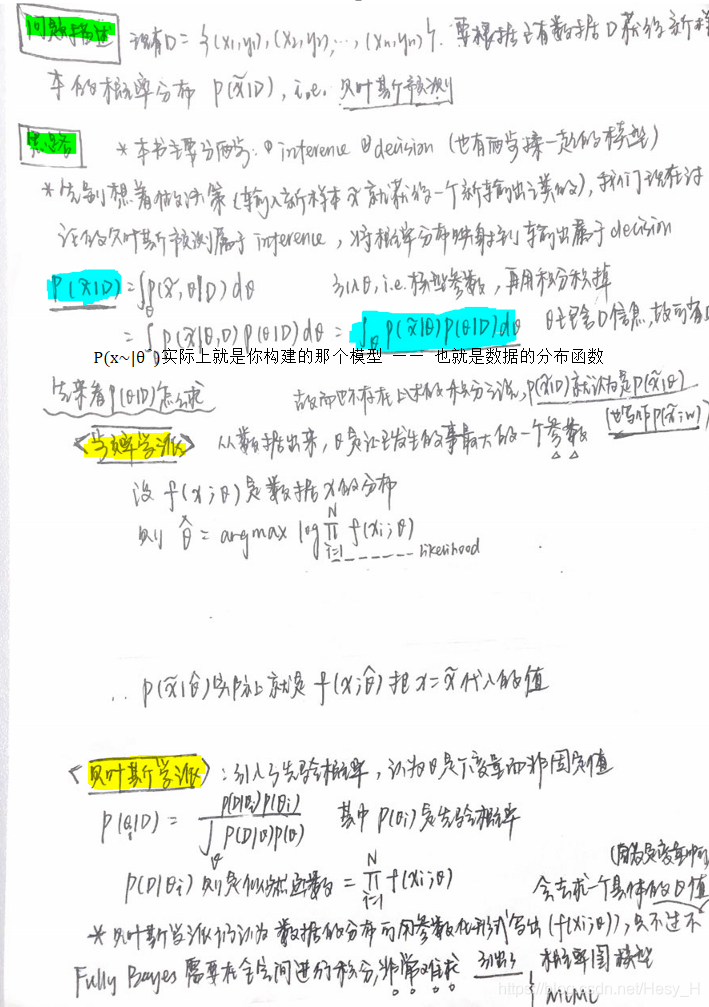 问题描述 现有D = {(x₁,y₁), (x₂,y₂), ..., (xn,yn)}. 要根据已有数据D获得新样
本的概率分布 p(x̃|D), i.e. 贝叶斯预测
思路 * 本书主要分两步: ① inference ② decision (也有两步揉一起的模型)
* 先别想着做决策 (输入新样本x̃就获得一个新输出之类的), 我们现在讨
论的贝叶斯预测属于 inference, 将概率分布映射到输出属于 decision
p(x̃|D) = ∫θ p(x̃,θ|D) dθ 引入θ, i.e. 模型参数, 再用积分积掉
= ∫ p(x̃|θ,D) p(θ|D) dθ = ∫θ p(x̃|θ) p(θ|D) dθ θ已包含D信息, 故可省
P(x~|θ )实际上就是你构建的那个模型 —— 也就是数据的分布函数
先来看p(θ|D)怎么求 故而也不存在上述的积分之说, p(x̃|D)就认为是p(x̃|θ)
<频率学派> 从数据出来, θ是让已发生的事最大的一个参数 (也写作p(x̃;w))
设 f(x;θ)是数据x的分布
则 θ̂ = argmax log ∏ᵢ₌₁ᴺ f(xi;θ)
likelihood
∴ p(x̃|θ̂)实际上就是 f(x;θ̂) 把 x=x̃ 代入的值
<贝叶斯学派>: 引入了先验概率, 认为θ是个变量而非固定值
p(θi|D) = p(D|θi)p(θi) / ∫θ p(D|θ)p(θ) 其中 p(θi)是先验概率
(因为是变量
p(D|θi) 则是似然函数 = ∏ᵢ₌₁ᴺ f(xi;θ) 会去求一个具体的θ值
* 贝叶斯学派仍认为数据的分布可用参数化形式写出 (f(xi;θ)), 只不过不
Fully Bayes 需要在全空间进行积分, 非常难求 引出了 概率图模型
https://blog.csdn.net/Hesy_H